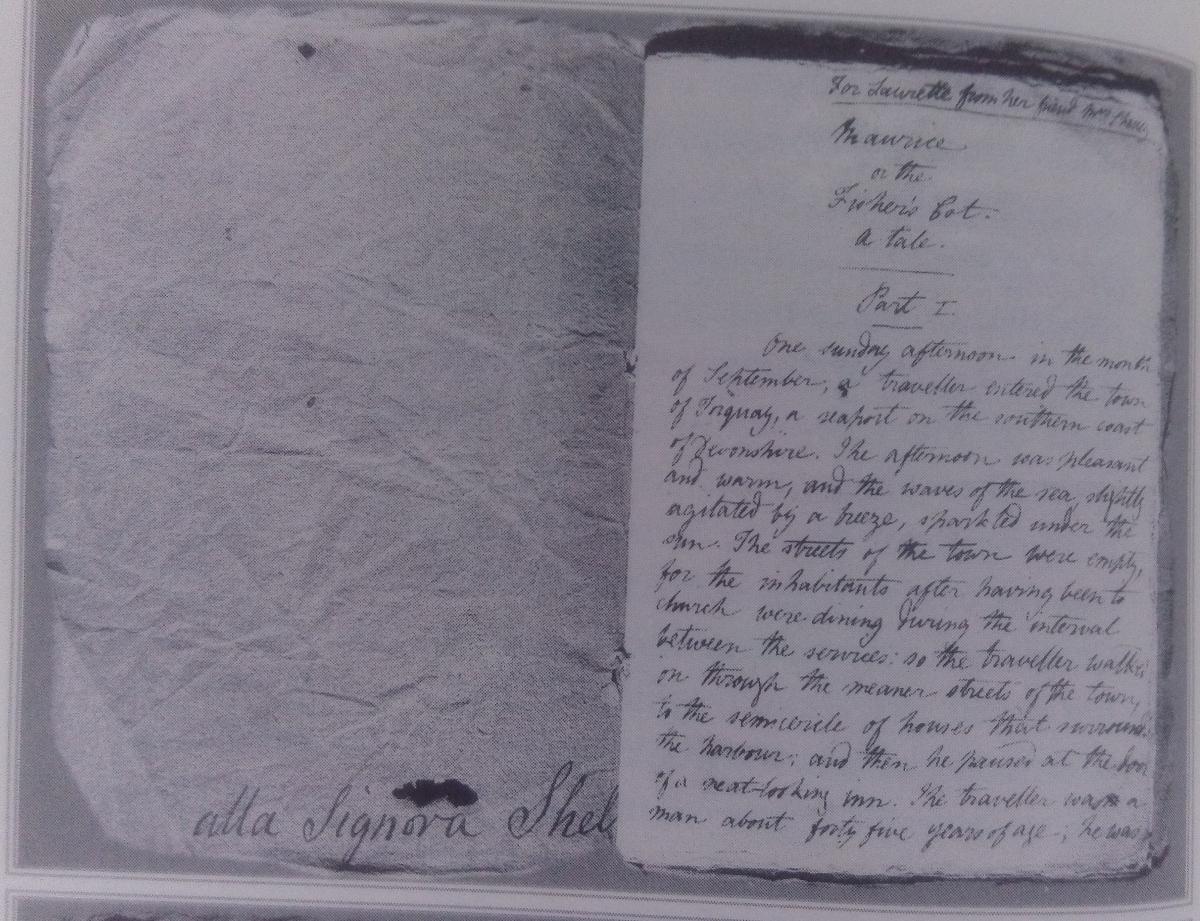 alla Signora Shel
For Laurette from her friend Mrs Shelley
Maurice
or the
Fisher's Cot.
A tale.
Part I.
One sunday afternoon in the month
of September, a traveller entered the town
of Torquay, a seaport on the southern coast
of Devonshire. The afternoon was pleasant
and warm, and the waves of the sea, slightly
agitated by a breeze, sparkled under the
sun. The streets of the town were empty,
for the inhabitants after having been to
church were dining during the interval
between the services: so the traveller walked
on through the meaner streets of the town,
to the semicircle of houses that surrounds
the harbour; and then he paused at the door
of a neat-looking inn. The traveller was a
man about forty five years of age; he was